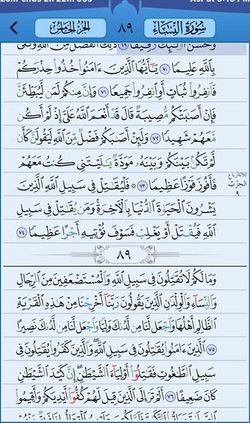 سُورَةُ النِّسَاءِ ٨٩ الجزء الخامس
وَحَسُنَ أُو۟لَٰٓئِكَ رَفِيقًا ٦٩ ذَٰلِكَ ٱلْفَضْلُ مِنَ ٱللَّهِ وَكَفَىٰ
بِٱللَّهِ عَلِيمًا ٧٠ يَٰٓأَيُّهَا ٱلَّذِينَ ءَامَنُوا۟ خُذُوا۟ حِذْرَكُمْ
فَٱنفِرُوا۟ ثُبَاتٍ أَوِ ٱنفِرُوا۟ جَمِيعًا ٧١ وَإِنَّ مِنكُمْ لَمَن لَّيُبَطِّئَنَّ
فَإِنْ أَصَٰبَتْكُم مُّصِيبَةٌ قَالَ قَدْ أَنْعَمَ ٱللَّهُ عَلَىَّ إِذْ لَمْ أَكُن
مَّعَهُمْ شَهِيدًا ٧٢ وَلَئِنْ أَصَٰبَكُمْ فَضْلٌ مِّنَ ٱللَّهِ لَيَقُولَنَّ كَأَن
لَّمْ تَكُنۢ بَيْنَكُمْ وَبَيْنَهُۥ مَوَدَّةٌ يَٰلَيْتَنِى كُنتُ مَعَهُمْ
فَأَفُوزَ فَوْزًا عَظِيمًا ٧٣ فَلْيُقَٰتِلْ فِى سَبِيلِ ٱللَّهِ ٱلَّذِينَ
يَشْرُونَ ٱلْحَيَوٰةَ ٱلدُّنْيَا بِٱلْءَاخِرَةِ وَمَن يُقَٰتِلْ فِى سَبِيلِ
ٱللَّهِ فَيُقْتَلْ أَوْ يَغْلِبْ فَسَوْفَ نُؤْتِيهِ أَجْرًا عَظِيمًا ٧٤
٨٩
وَمَا لَكُمْ لَا تُقَٰتِلُونَ فِى سَبِيلِ ٱللَّهِ وَٱلْمُسْتَضْعَفِينَ مِنَ ٱلرِّجَالِ
وَٱلنِّسَآءِ وَٱلْوِلْدَٰنِ ٱلَّذِينَ يَقُولُونَ رَبَّنَآ أَخْرِجْنَا مِنْ هَٰذِهِ ٱلْقَرْيَةِ
ٱلظَّالِمِ أَهْلُهَا وَٱجْعَل لَّنَا مِن لَّدُنكَ وَلِيًّا وَٱجْعَل لَّنَا مِن لَّدُنكَ نَصِيرًا
٧٥ ٱلَّذِينَ ءَامَنُوا۟ يُقَٰتِلُونَ فِى سَبِيلِ ٱللَّهِ وَٱلَّذِينَ كَفَرُوا۟ يُقَٰتِلُونَ فِى
سَبِيلِ ٱلطَّٰغُوتِ فَقَٰتِلُوٓا۟ أَوْلِيَآءَ ٱلشَّيْطَٰنِ إِنَّ كَيْدَ ٱلشَّيْطَٰنِ
كَانَ ضَعِيفًا ٧٦ أَلَمْ تَرَ إِلَى ٱلَّذِينَ قِيلَ لَهُمْ كُفُّوٓا۟ أَيْدِيَكُمْ وَأَقِيمُوا۟